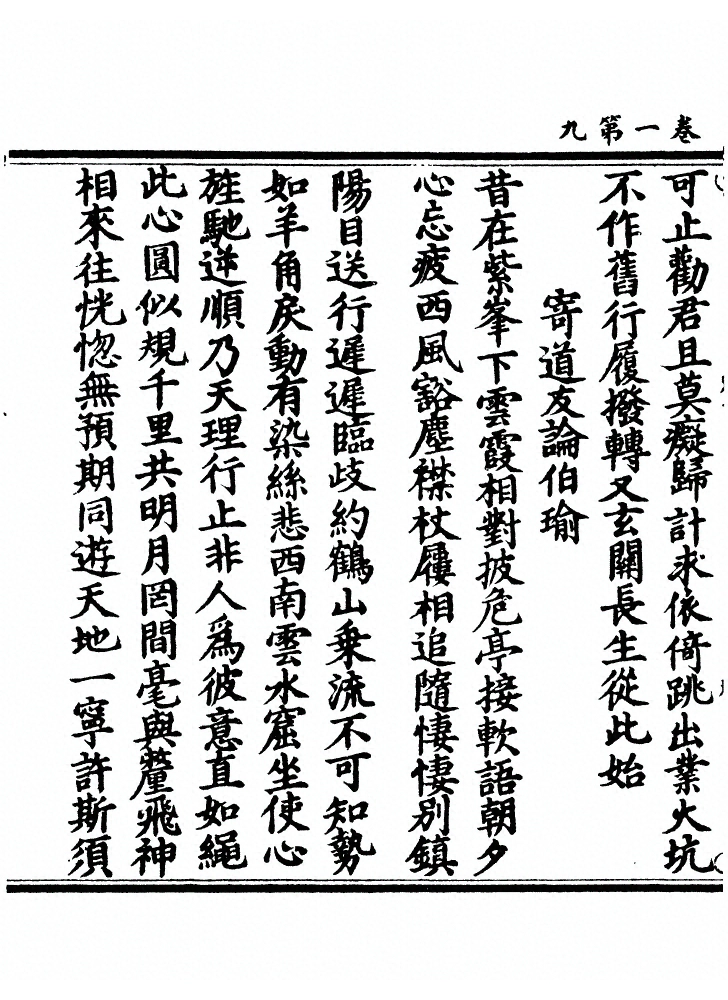 卷一第九
可止勸君且莫癡歸計求依倚跳出業火坑
不作舊行履撥轉又玄關長生從此始
寄道友論伯瑜
昔在紫峯下雲霞相對披危亭接軟語朝夕
心忘疲西風豁塵襟杖屨相追隨悽悽別鎮
陽目送行遲遲臨歧約鶴山乗流不可知勢
如羊角戾動有染絲悲西南雲水窟坐使心
旌馳逆順乃天理行止非人爲彼意直如繩
此心圓似規千里共明月罔間毫與釐飛神
相來往恍惚無預期同遊天地一寧許斯須